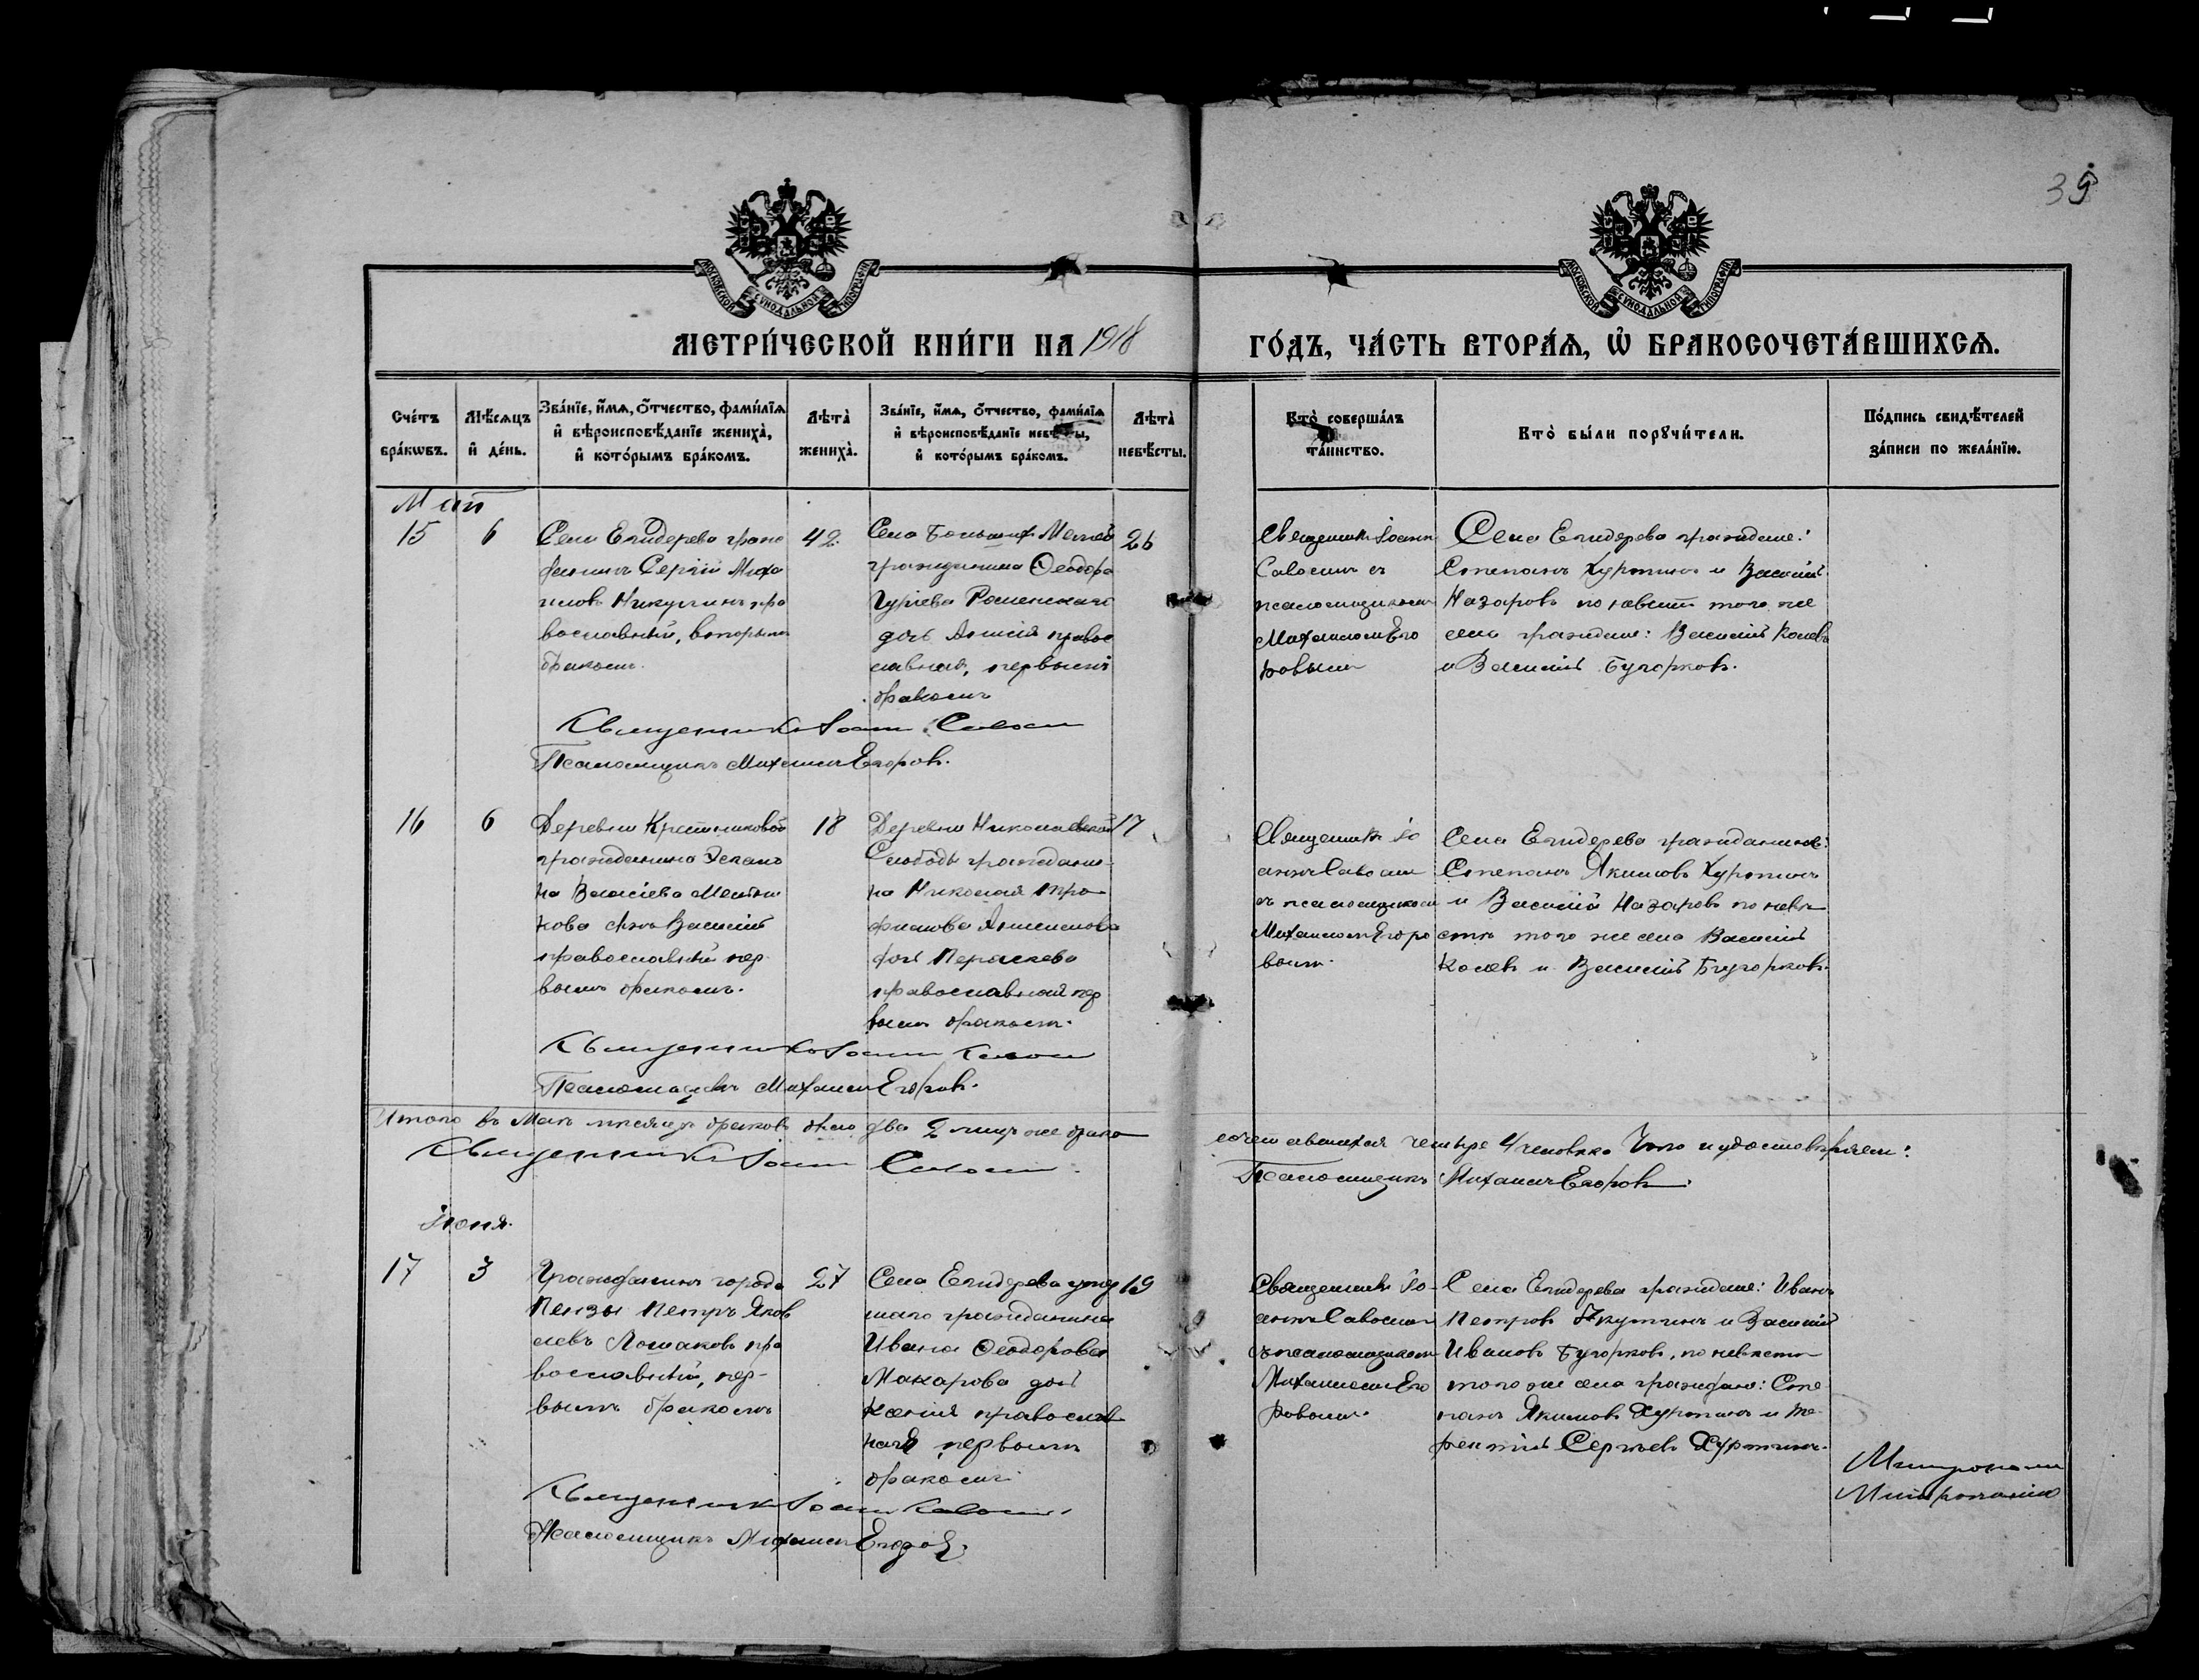 39
МОСКОВСКОЙ СУНОДАЛЬНОЙ ТИПОГРАФІИ
МОСКОВСКОЙ СУНОДАЛЬНОЙ ТИПОГРАФІИ
МЕТРИ́ЧЕСКОЙ КНИ́ГИ НА 1918
ГО́ДЪ, ЧА́СТЬ ВТОРА́Ѧ, Ѡ БРАКОСОЧЕТА́ВШИХСѦ.
Сче́тъ бра́кѡвъ.
Мѣ́сѧцъ и҆ де́нь.
Зва́нїе, и҆́мѧ, ѻ҆́тчество, фами́лїѧ
и҆ вѣроисповѣ́данїе жениха̀,
и҆ кото́рымъ бра́комъ.
Лѣта̀ жениха̀.
Зва́нїе, и҆́мѧ, ѻ҆́тчество, фами́лїѧ
и҆ вѣроисповѣ́данїе невѣ́сты,
и҆ кото́рымъ бра́комъ.
Лѣта̀ невѣ́сты.
Кто̀ соверша́лъ
та́инство.
Кто̀ бы́ли порꙋчи́тели.
По́дпись свидѣ́телей
за́писи по жела́нїю.
Май
15
6
Села Елидерева граж
данинъ Сергій Миха
иловъ Никулинъ пра
вославный, вторымъ
бракомъ.
42.
Села
гражданина Ѳеодора
Гуріева
дочь Анисія правос
лавная, первымъ
бракомъ
26
Священникъ Іоаннъ
Савосинъ съ
псаломщикомъ
Михаиломъ Его
ровымъ
Села Елидерева граждане:
Степанъ Хуртинъ и Василій
Назаровъ по невѣстѣ того же
села граждане: Василій
и Василій Бугорковъ.
Священникъ Іоаннъ Савосинъ
Псаломщикъ Михаилъ Егоровъ.
16
6
Деревни
гражданина
на Василіева
кова сынъ Василій
православный пер
вымъ бракомъ.
18
Деревни Николаевской
Слободы граждани-
на Николая Тро
фимова
дочь Параскева
православная пер
вымъ бракомъ.
17
Священникъ Іо
аннъ Савосинъ
съ псаломщикомъ
Михаиломъ Егоро
вымъ.
Села Елидерева гражданинъ:
Степанъ Якимовъ Хуртинъ
и Василій Назаровъ по невѣ
стѣ того же села Василій
и Василій Бугорковъ.
Священникъ Іоаннъ Савосинъ
Псаломщикъ Михаилъ Егоровъ.
Итого въ Маѣ мѣсяцѣ браковъ было два 2 лицъ же брако
сочетавшихся четыре 4 человѣка Что и удостовѣряемъ:
Священникъ Іоаннъ Савосинъ.
Псаломщикъ Михаилъ Егоровъ.
Іюня.
17
3
Гражданинъ города
Пензы Петръ Яков
левъ Лошаковъ пра
вославный, пер-
вымъ бракомъ
27
Села Елидерева умер
шаго гражданина
Ивана Ѳеодорова
Макарова дочь
Ксенія православ
ная первымъ
бракомъ.
19
Священникъ Іо-
аннъ Савосинъ
съ псаломщикомъ
Михаиломъ Его
ровымъ.
Села Елидерева граждане: Иванъ
Петровъ и Василій
Ивановъ Бугорковъ, по невѣстѣ
того же села граждане: Сте
панъ Якимовъ Хуртинъ и Те
рентій Сергѣевъ Хуртинъ.
Священникъ Іоаннъ Савосинъ.
Псаломщикъ Михаилъ Егоровъ.